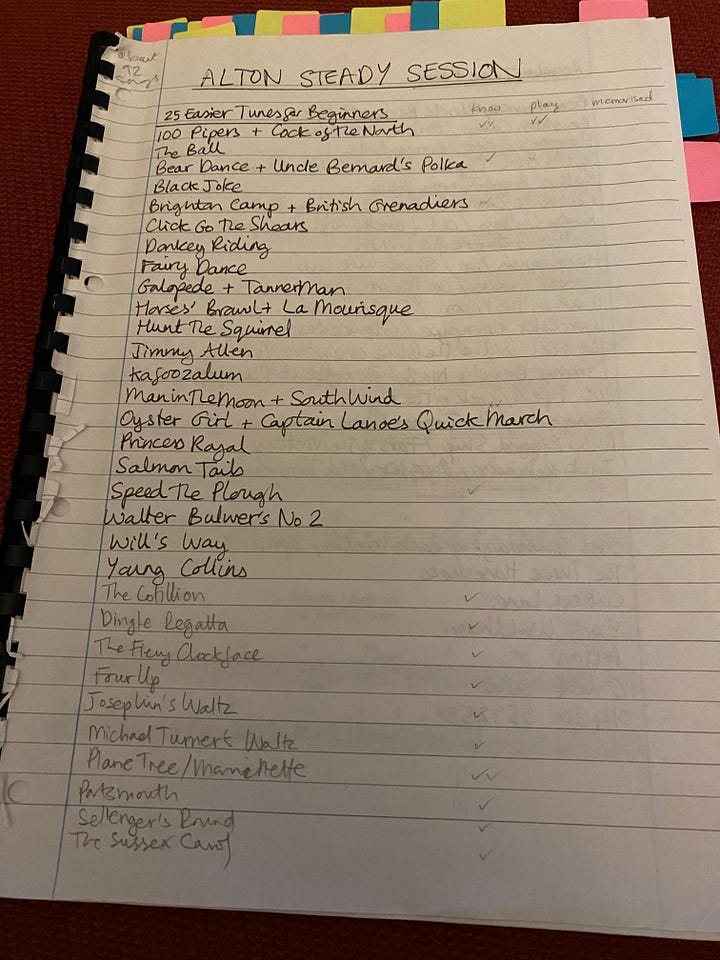 about
92
songs
ALTON STEADY SESSION
know play memorised
25 Easier Tunes for Beginners
100 Pipers + Cock of the North ✓✓ ✓✓
The Ball
Bear Dance + Uncle Bernard's Polka ✓
Black Joke
Brighton Camp + British Grenadiers
Click Go The Shears
Donkey Riding
Fairy Dance
Galopede + TannerMan
Horses' Brawl + La Mourisque
Hunt The Squirrel
Jimmy Allen
Kafoozalum
Man in The Moon + South Wind
Oyster Girl + Captain Lanoe's Quick March
Princess Royal
Salmon Tails
Speed The Plough ✓
Walter Bulwer's No 2
Will's Way
Young Collins
The Cotillion ✓
Dingle Regatta ✓
The Fiery Clockface ✓
Four Up ✓
Josephin's Waltz ✓
Michael Turner's Waltz ✓
Plane Tree/Mariettette ✓✓
Portsmouth ✓
Sellenger's Round ✓
The Sussex Carol ✓